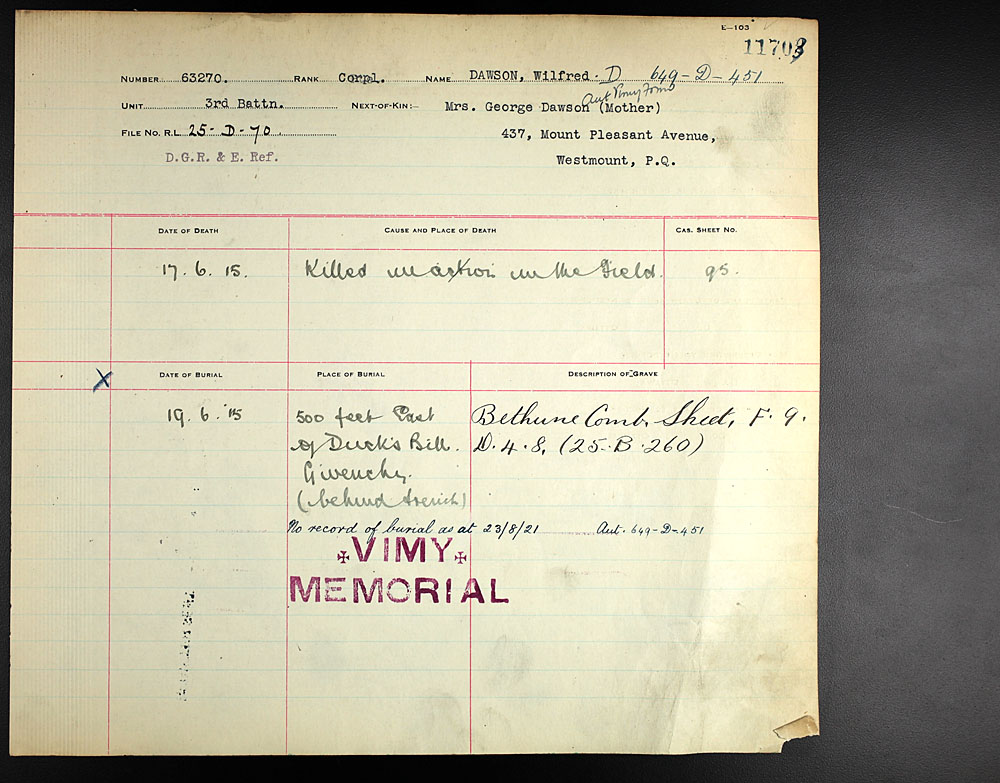 E—103
11703
NUMBER 63270. RANK Corpl. NAME DAWSON, Wilfred. D 649-D-451
Aut Vimy Form
UNIT 3rd Battn. NEXT-OF-KIN:— Mrs. George Dawson (Mother)
FILE NO. R.L. 25-D-70. 437, Mount Pleasant Avenue,
D.G.R. & E. Ref. Westmount, P.Q.
DATE OF DEATH CAUSE AND PLACE OF DEATH CAS. SHEET NO.
17.6.15. Killed in action in the Field. 95.
X DATE OF BURIAL PLACE OF BURIAL DESCRIPTION OF GRAVE
19.6.15 500 feet East Bethune Comb. Sheet, F. 9.
of Duck's Bill. D.4.8. (25-B-260)
Givenchy.
(behind trench)
No record of burial as at 23/8/21 Aut. 649-D-451
VIMY
MEMORIAL